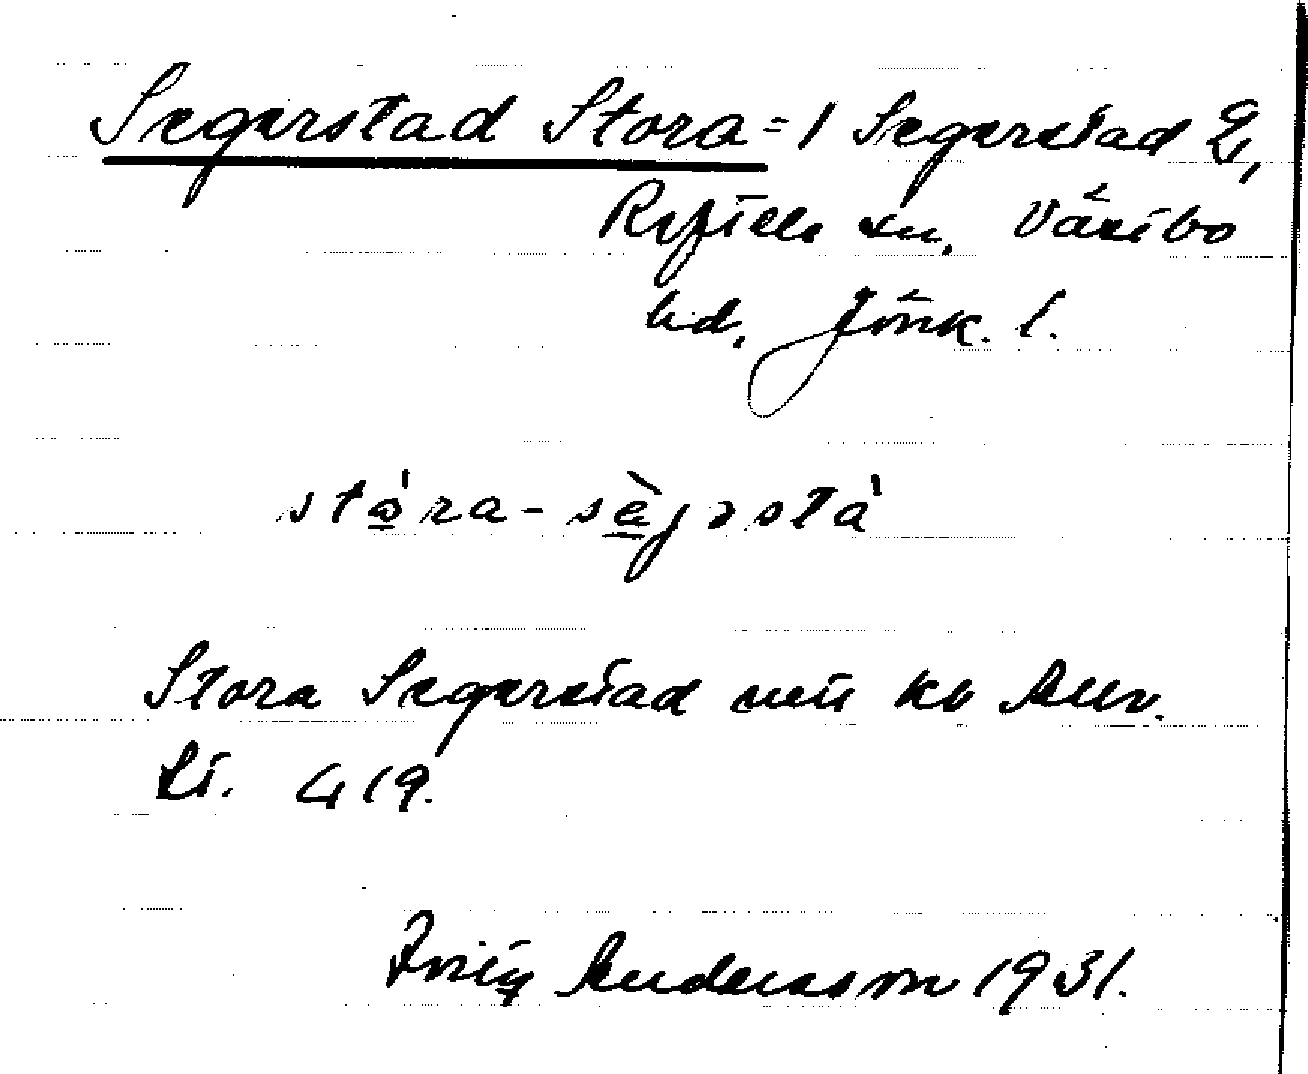 Segerstad Stora = 1 Segerstad 2,
Reftele sn. Västbo
hd, Jönk. l.
stọ́ra-sɛ̀jəstá
Stora Segerstad utr kb
Lt. 419.
Fritz Andersson 1931.